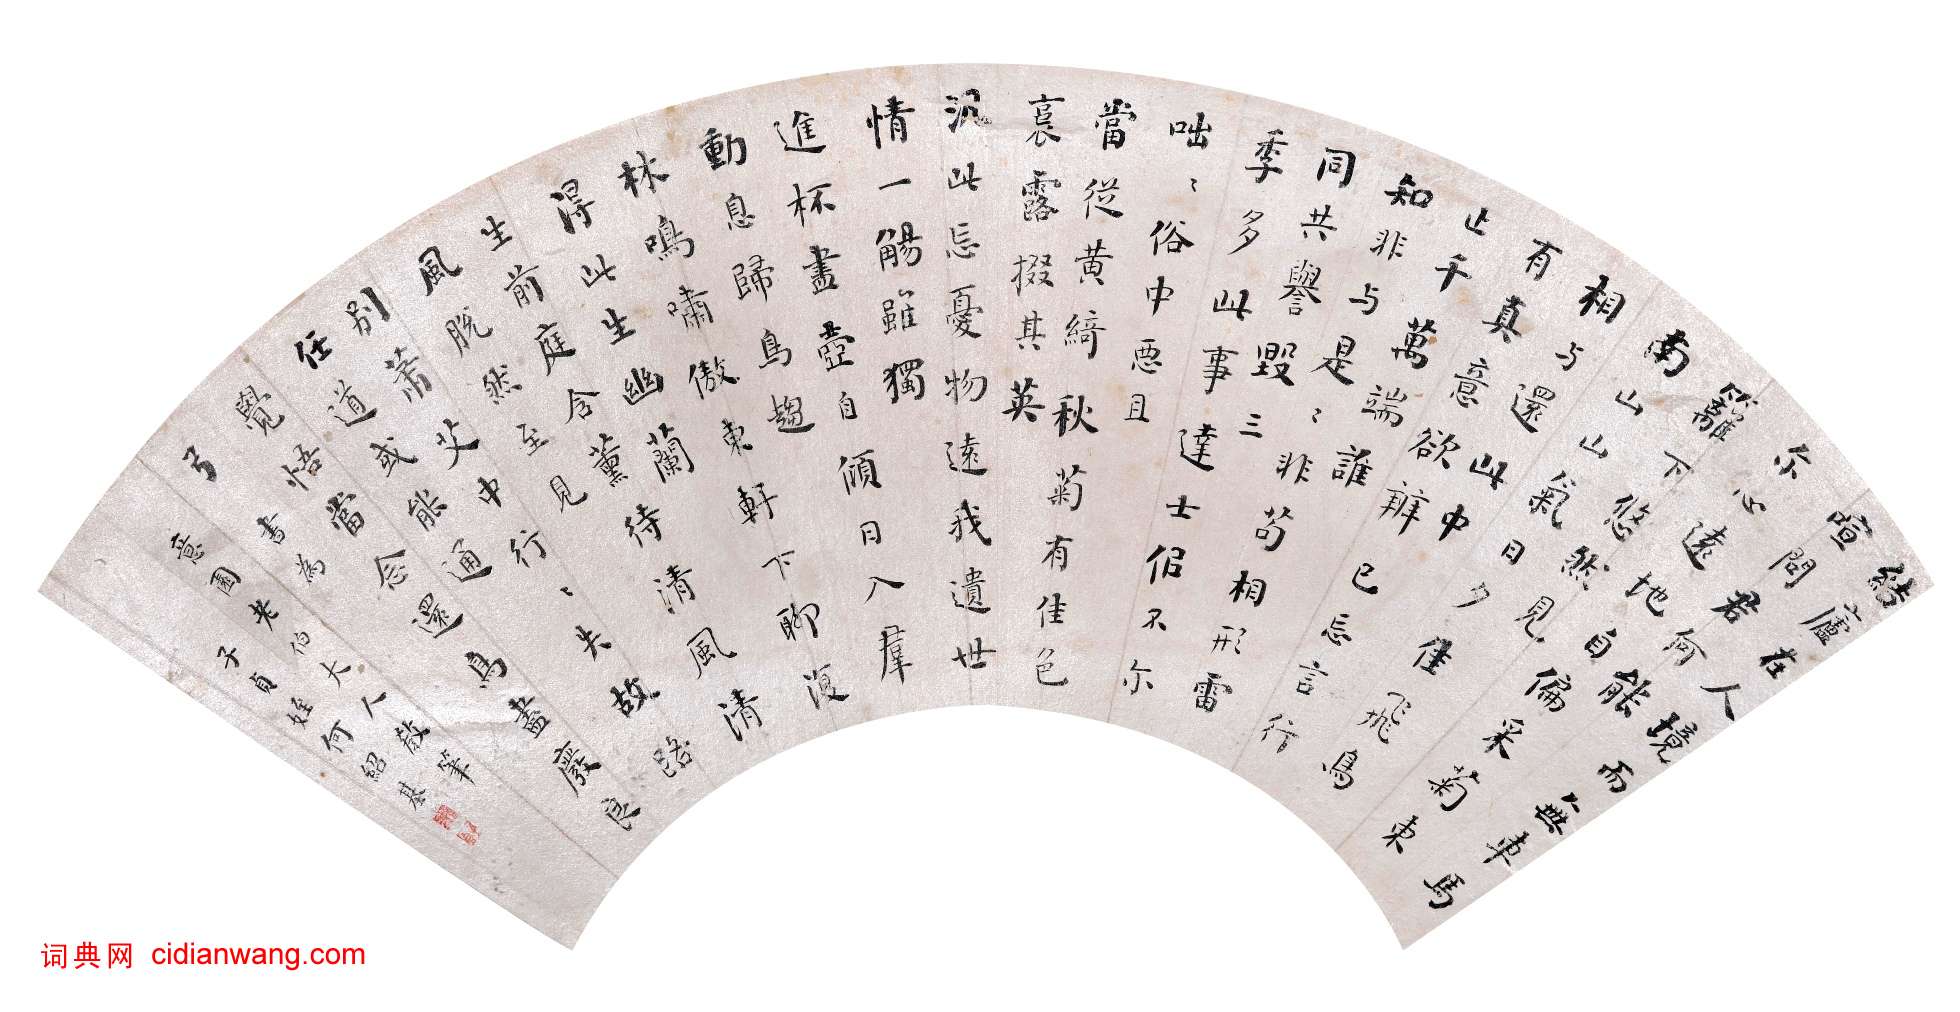 結廬在人境而無車馬
喧問君何能
尔心遠地自偏采菊東
籬下悠然見
南山山氣日夕佳飛鳥
相与還此中
有真意欲辨已忘言行
止千萬端誰
知非与是〻非苟相形雷
同共譽毀三
季多此事達士佀不尔
咄〻俗中惡且
當從黃綺秋菊有佳色
裛露掇其英
汎此忘憂物遠我遺世
情一觴雖獨
進杯盡壺自傾日入羣
動息歸鳥趨
林鳴嘯傲東軒下聊復
得此生幽蘭
生前庭含薰待清風清
風脫然至見
別蕭艾中行〻失故路
任道或能通
覺悟當念還鳥盡廢良
弓 書為
意園老伯大人教筆
子貞姪何紹基
词典网 cidianwang.com